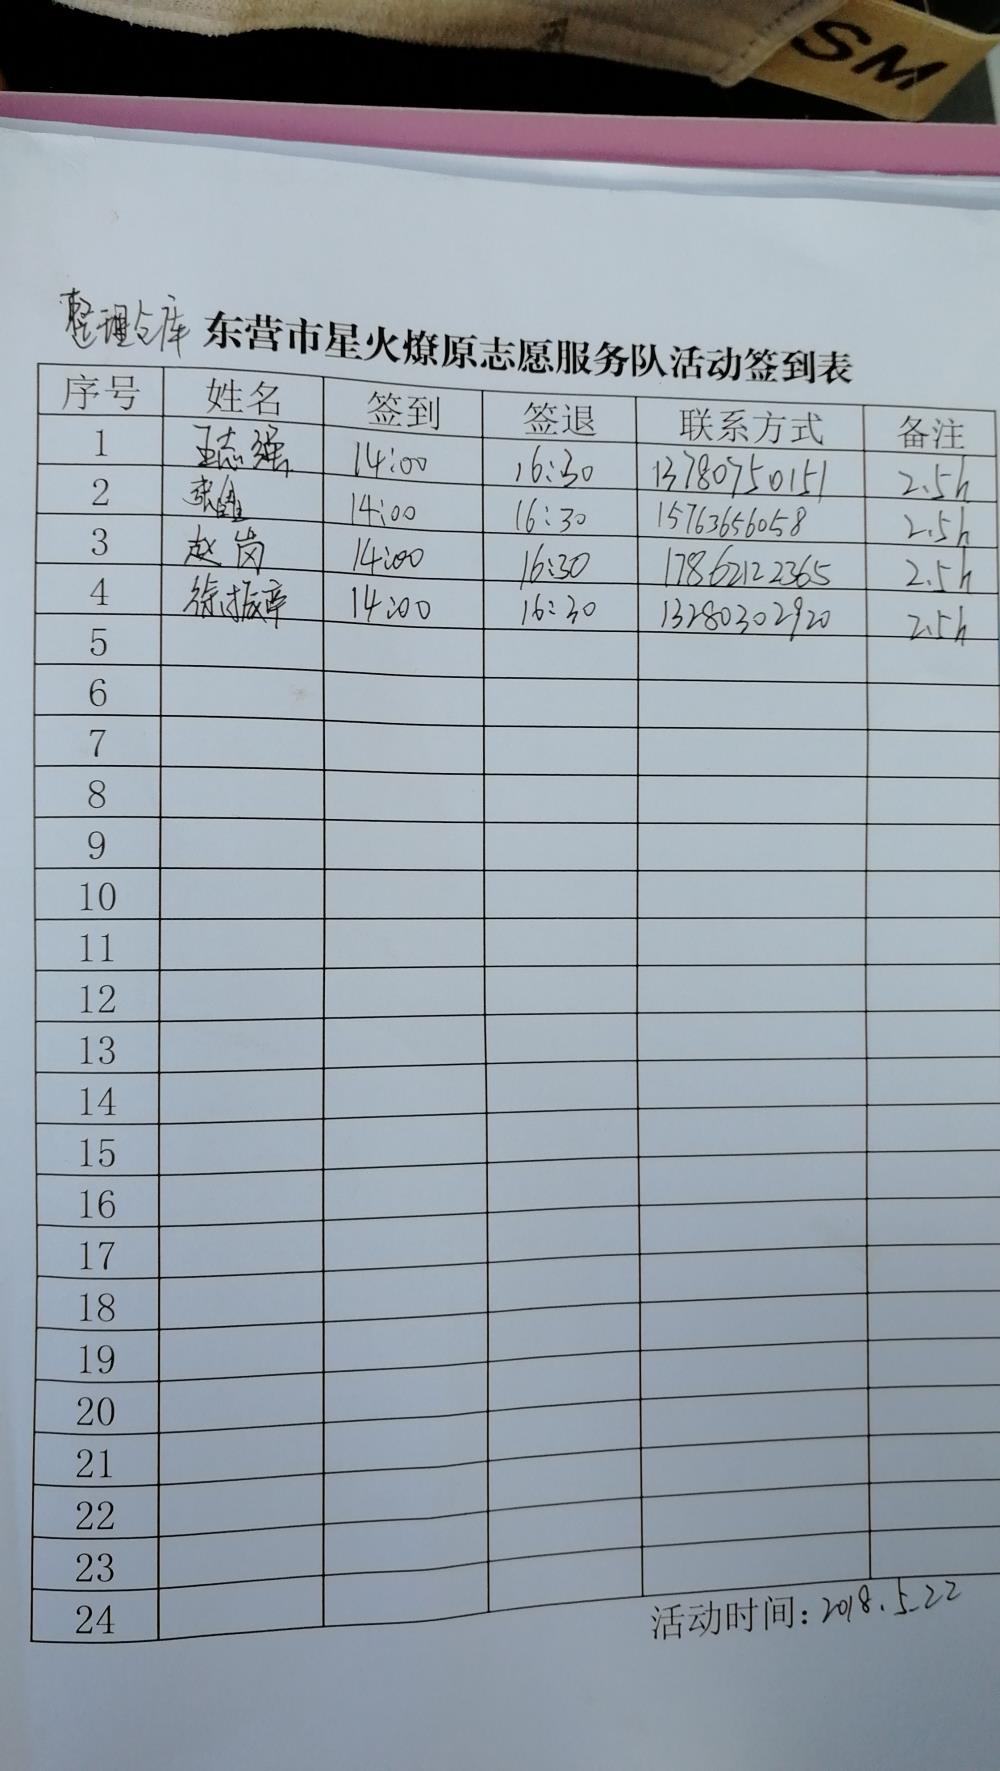 SM
整理仓库 东营市星火燎原志愿服务队活动签到表
序号 姓名 签到 签退 联系方式 备注
1 王志强 14:00 16:30 13780750151 2.5h
2 张 14:00 16:30 15763656058 2.5h
3 赵岗 14:00 16:30 17862122365 2.5h
4 徐振章 14:00 16:30 13280302920 2.5h
5
6
7
8
9
10
11
12
13
14
15
16
17
18
19
20
21
22
23
24
活动时间: 2018.5.22